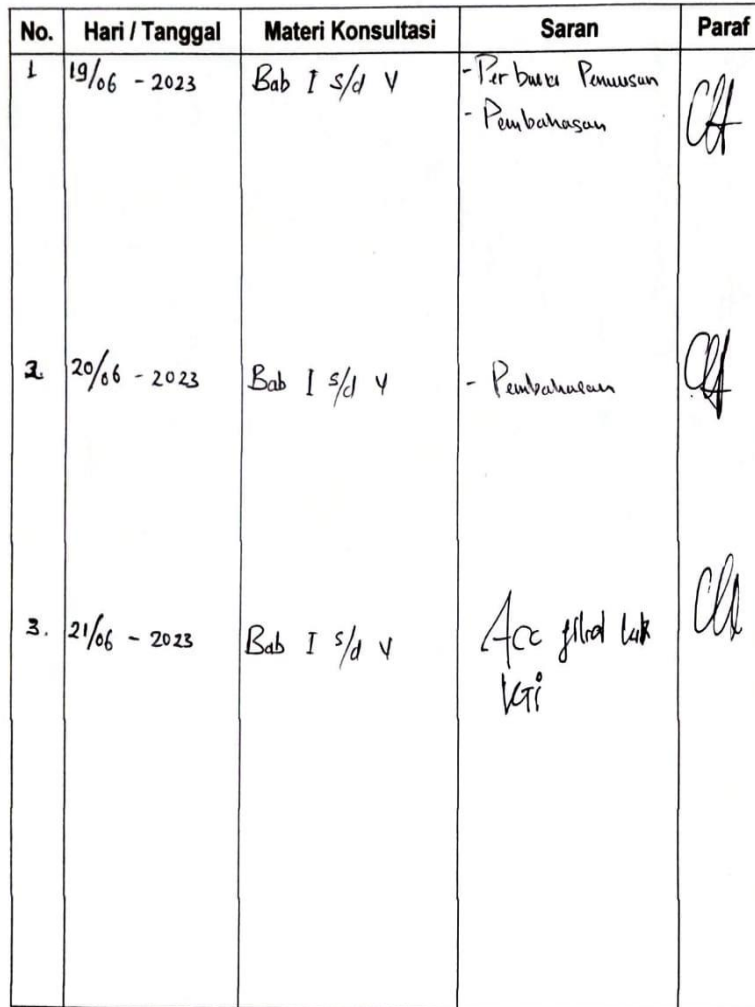 No. Hari / Tanggal Materi Konsultasi Saran Paraf
1 19/06 - 2023 Bab I s/d V - Per
- Pembahasan
2. 20/06 - 2023 Bab I s/d V - Pembahasan
3. 21/06 - 2023 Bab I s/d V Acc
KTI